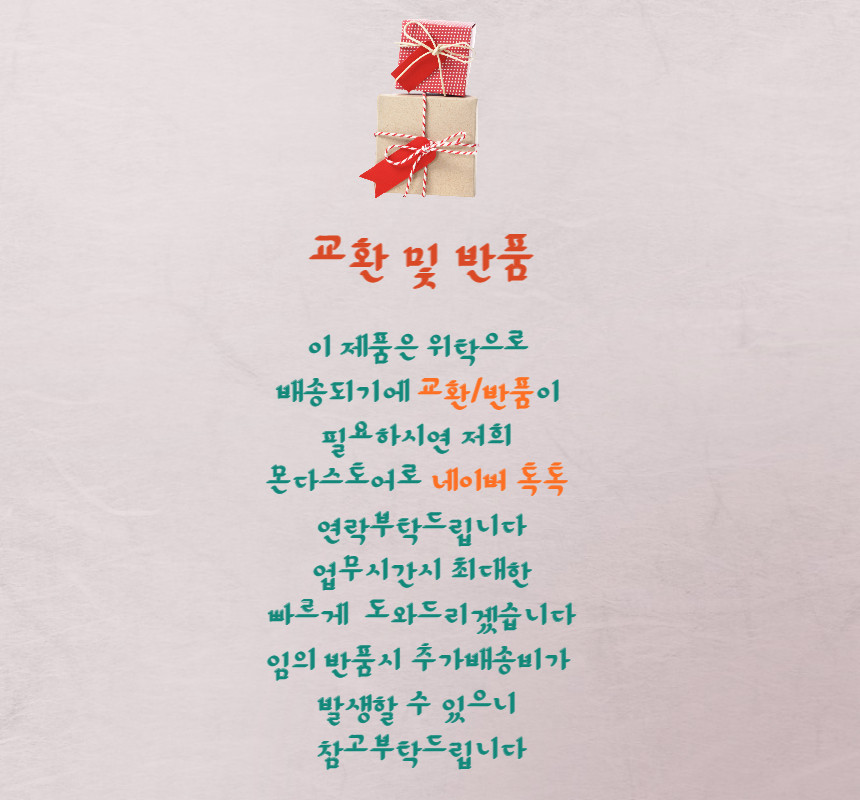 교환 및 반품
이 제품은 위탁으로
배송되기에 교환/반품이
필요하시면 저희
몬다스토어로 네이버 톡톡
연락부탁드립니다
업무시간시 최대한
빠르게 도와드리겠습니다
임의 반품시 추가배송비가
발생할 수 있으니
참고부탁드립니다